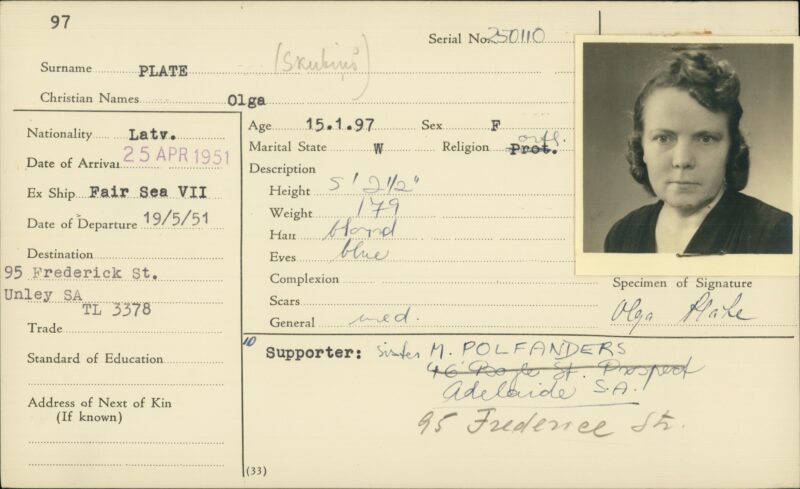 97
Serial No. 250110
Surname PLATE (Skubiņš)
Christian Names Olga
Nationality Latv.
Date of Arrival 25 APR 1951
Ex Ship Fair Sea VII
Date of Departure 19/5/51
Destination
95 Frederick St.
Unley SA
TL 3378
Trade
Standard of Education
Address of Next of Kin
(If known)
Age 15.1.97 Sex F
Marital State W Religion Prot. orth.
Description
Height 5' 2 1/2"
Weight 179
Hair blond
Eyes blue
Complexion
Scars
General med.
Specimen of Signature
Olga Plate
10 Supporter: Sister M. POLFANDERS
46 Boyle St. Prospect
Adelaide S.A.
95 Frederice Str.
(33)